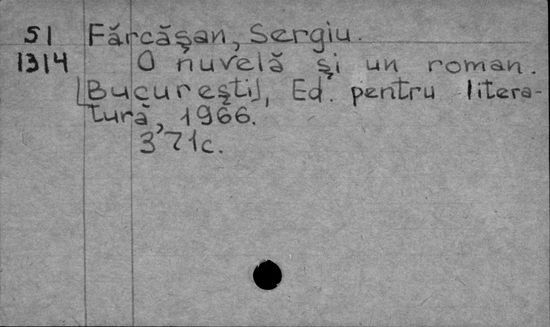 51 Fărcăşan, Sergiu.
1314 O nuvelă şi un roman.
[Bucureşti], Ed. pentru litera-
tură, 1966.
371c.